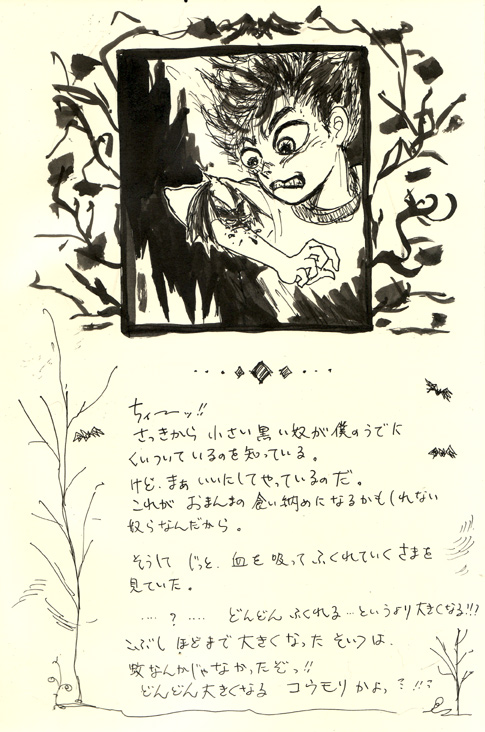 ちィ〜ッ!!
さっきから 小さい黒い奴が僕のうでに
くいついているのを知っている。
けど、まぁ いいにしてやっているのだ。
これが おまんまの食い納めになるかもしれない
奴らなんだから。
そうして じっと、血を吸って ふくれていくさまを
見ていた。
‥‥ ? ‥‥ どんどん ふくれる…というより大きくなる!!?
こぶし ほどまで 大きくなった そいつは、
蚊なんかじゃなかったぞっ!!
どんどん大きくなる コウモリかよっ?!!?